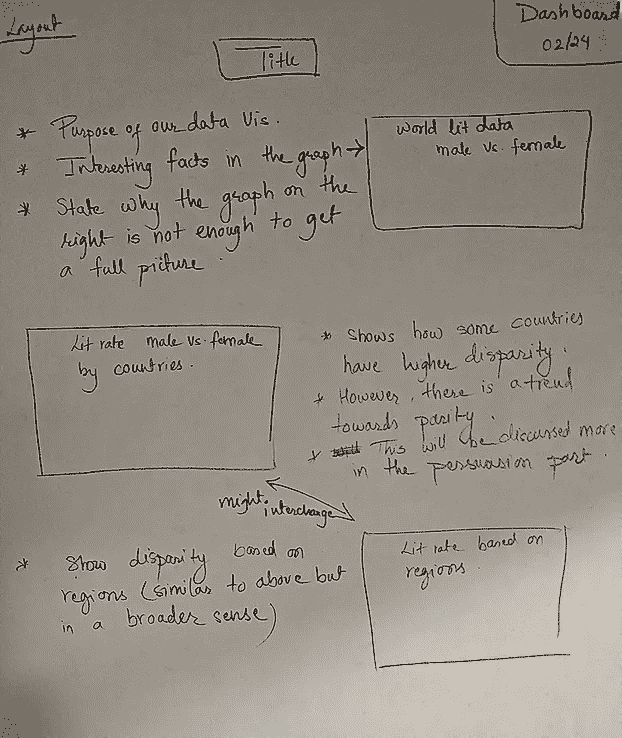 Layout
Dashboard
02/24
Title
* Purpose of our data Vis.
* Interesting facts in the graph →
* State why the graph on the
right is not enough to get
a full picture.
World lit data
male vs. female
Lit rate male vs. female
by countries.
* Shows how some countries
have higher disparity.
* However, there is a trend
towards parity.
* This will be discussed more
in the persuasion part.
might interchange
* Show disparity based on
regions (similar to above but
in a broader sense)
Lit rate based on
regions.